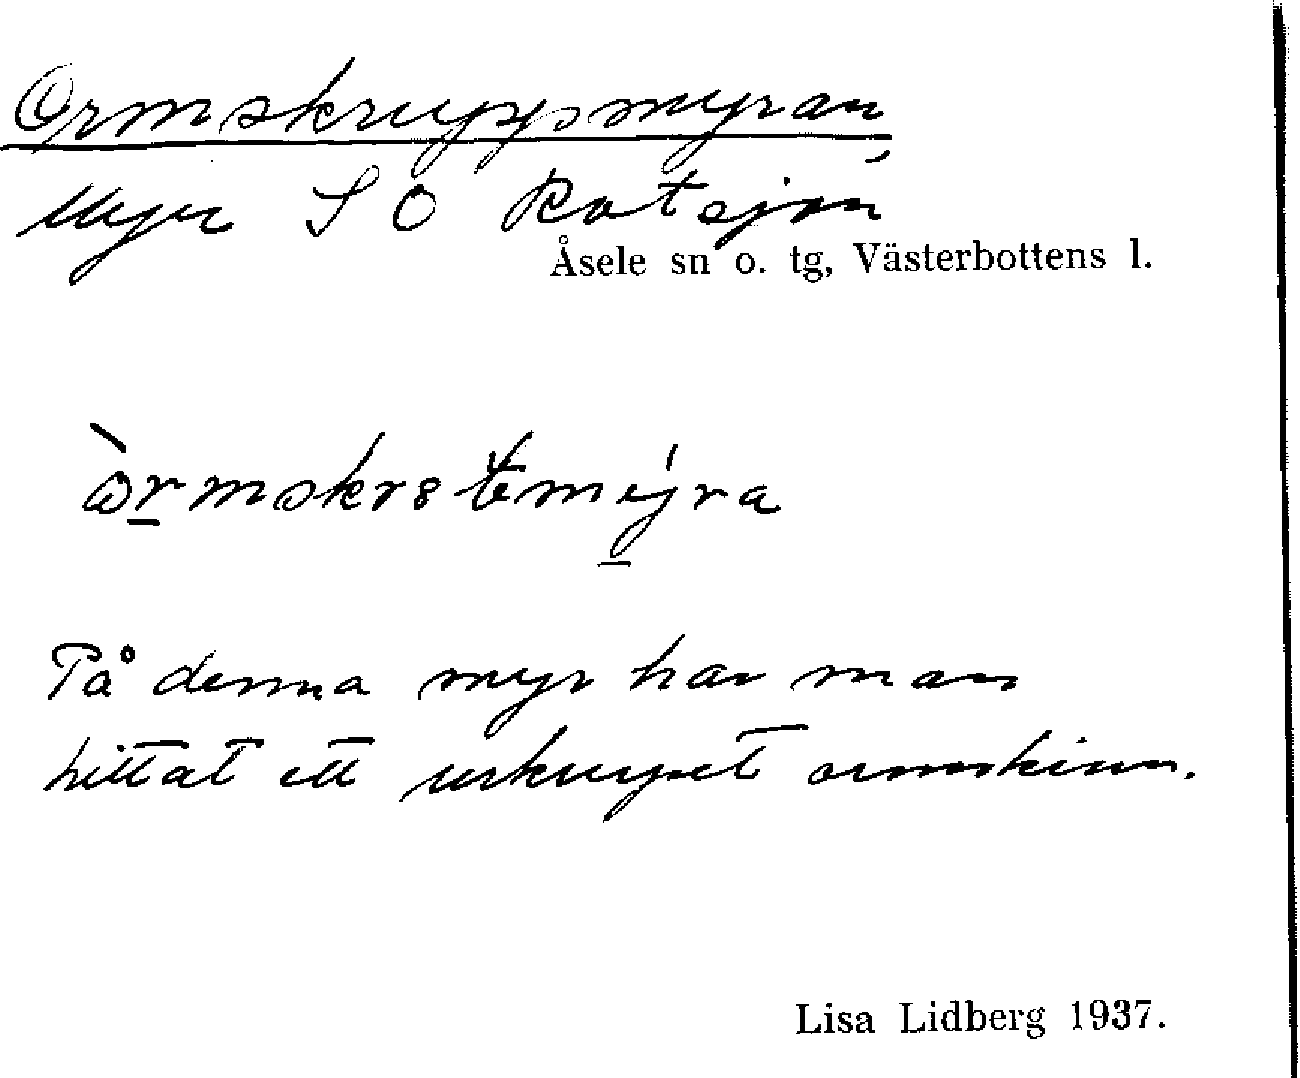 Ormskruppmyran
Myr S O Ratsjön,
Åsele sn o. tg, Västerbottens l.
På denna myr har man
hittat ett urkrupet ormskinn.
Lisa Lidberg 1937.